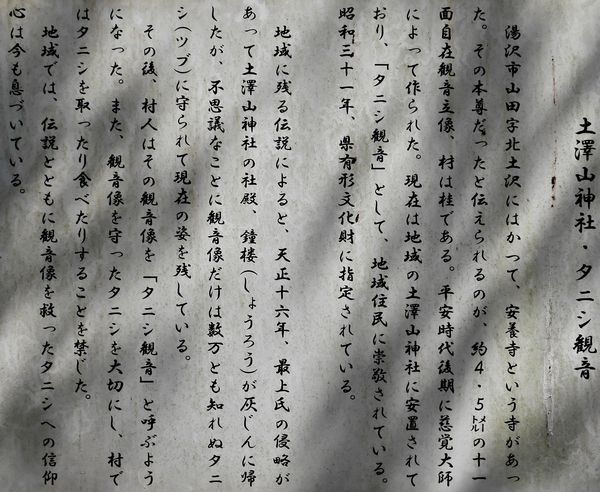 土澤山神社・タニシ観音
湯沢市山田字北土沢にはかつて、安養寺という寺があっ
た。その本尊だったと伝えられるのが、約4・5㍍の十一
面自在観音立像、村は桂である。平安時代後期に慈覚大師
によって作られた。現在は地域の土澤山神社に安置されて
おり、「タニシ観音」として、地域住民に崇敬されている。
昭和三十一年、県有形文化財に指定されている。
地域に残る伝説によると、天正十六年、最上氏の侵略が
あって土澤山神社の社殿、鐘楼(しょうろう)が灰じんに帰
したが、不思議なことに観音像だけは数万とも知れぬタニ
シ(ツブ)に守られて現在の姿を残している。
その後、村人はその観音像を「タニシ観音」と呼ぶよう
になった。また、観音像を守ったタニシを大切にし、村で
はタニシを取ったり食べたりすることを禁じた。
地域では、伝説とともに観音像を救ったタニシへの信仰
心は今も息づいている。